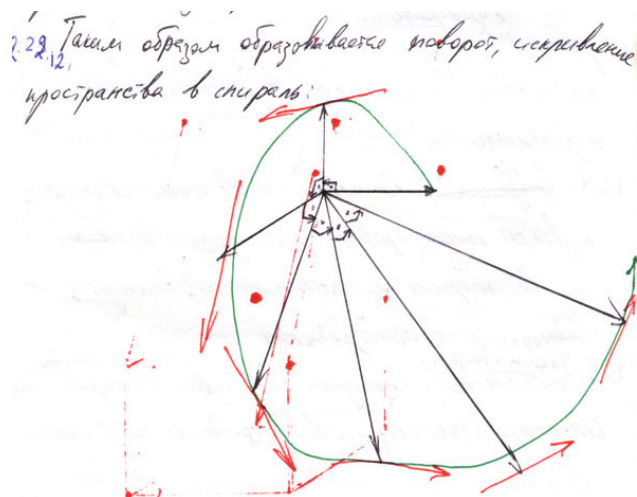 2.22.12. Таким образом образовывается поворот, искривление
пространства в спираль: